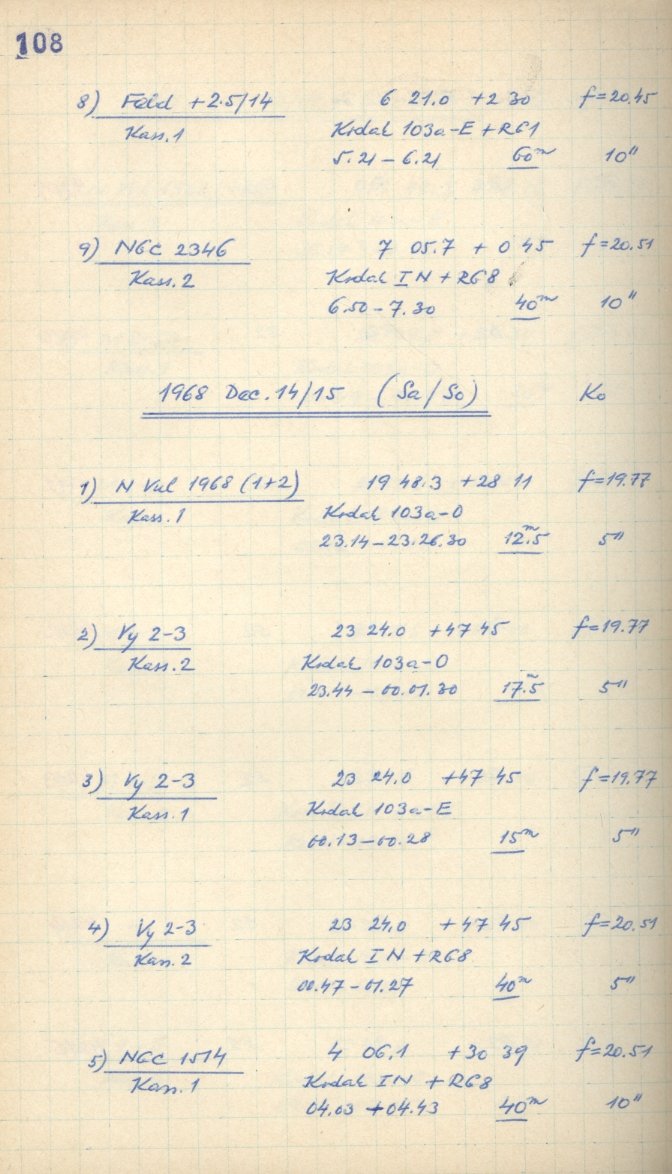 108
8) Feld +2.5/14 6 21.0 +2 30 f=20.45
Kass.1 Kodak 103a-E + RG1
5.21 – 6.21 60m 10"
9) NGC 2346 7 05.7 + 0 45 f=20.51
Kass.2 Kodak IN + RG8
6.50 – 7.30 40m 10"
1968 Dec. 14/15 (Sa/So) Ko
1) N Vul 1968 (1+2) 19 48.3 +28 11 f=19.77
Kass.1 Kodak 103a-O
23.14 – 23.26.30 12m.5 5"
2) Vy 2-3 23 24.0 +47 45 f=19.77
Kass.2 Kodak 103a-O
23.44 – 00.01.30 17m.5 5"
3) Vy 2-3 23 24.0 +47 45 f=19.77
Kass.1 Kodak 103a-E
00.13 – 00.28 15m 5"
4) Vy 2-3 23 24.0 +47 45 f=20.51
Kass.2 Kodak IN + RG8
00.47 – 01.27 40m 5"
5) NGC 1514 4 06.1 +30 39 f=20.51
Kass.1 Kodak IN + RG8
04.03 – 04.43 40m 10"